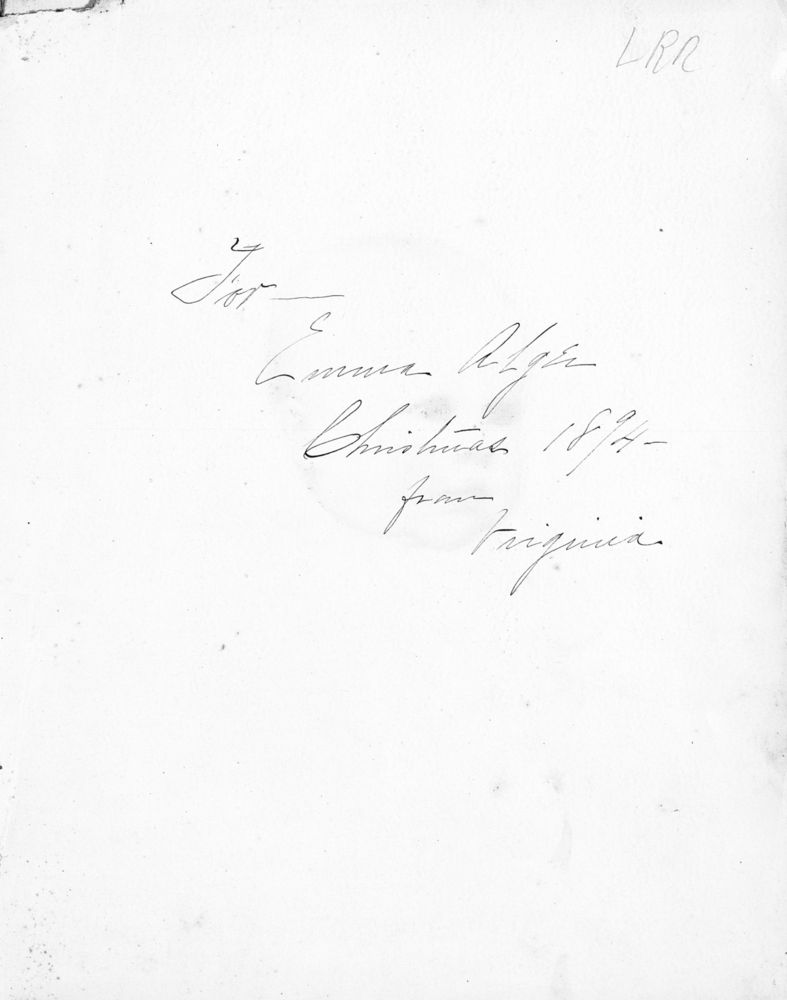 LRR
For—
Emma Alger
Christmas 1894—
from
Virginia